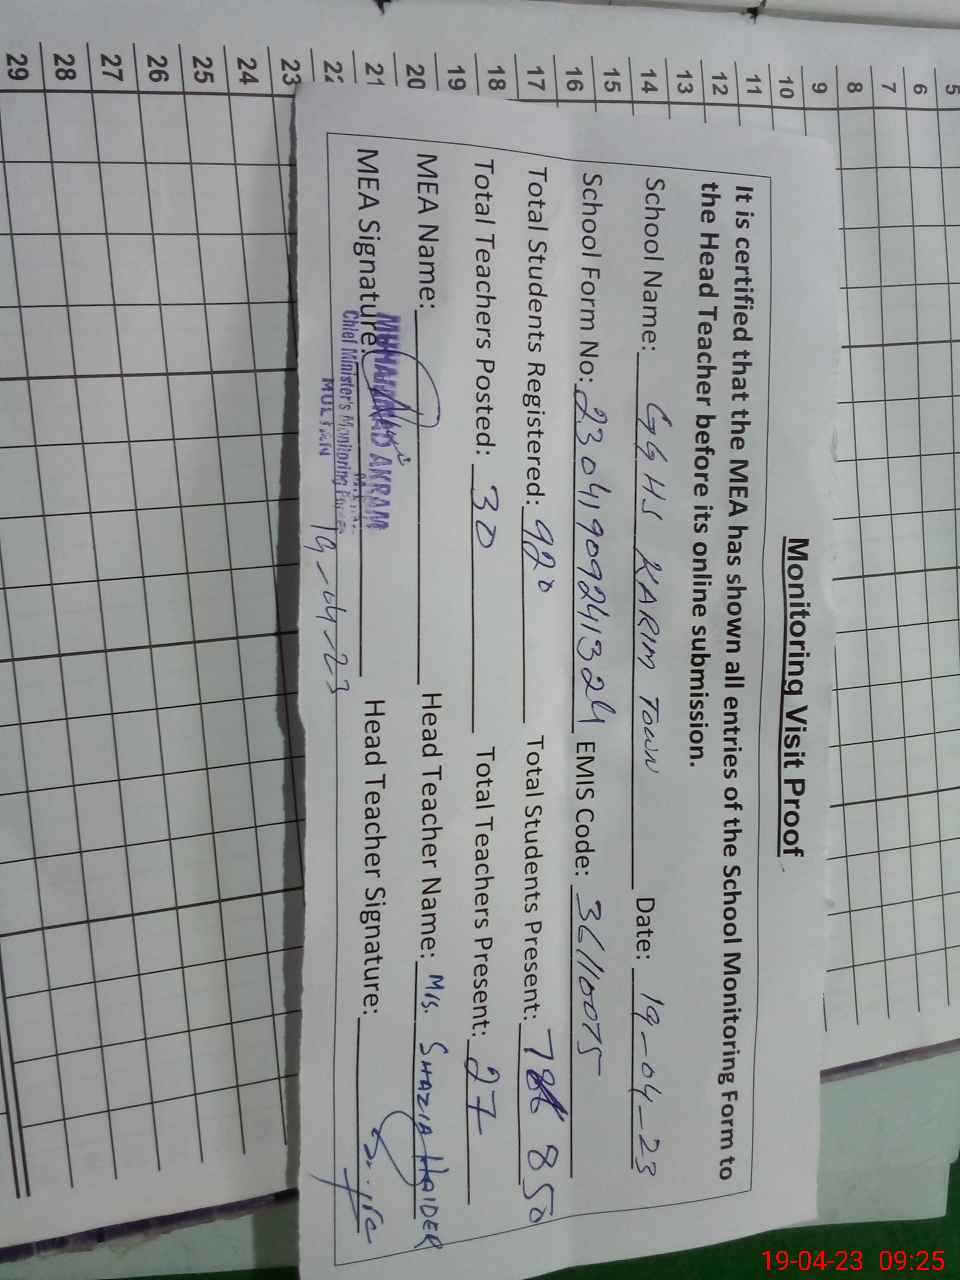 5
6
7
8
9
10
11
12
13
14
15
16
17
18
19
20
21
22
23
24
25
26
27
28
29
Monitoring Visit Proof
It is certified that the MEA has shown all entries of the School Monitoring Form to
the Head Teacher before its online submission.
School Name: GGHS KARIM TOWN Date: 19-04-23
School Form No: 23041909241324 EMIS Code: 36110075
Total Students Registered: 920 Total Students Present: 850
Total Teachers Posted: 30 Total Teachers Present: 27
MEA Name: Head Teacher Name: Mrs. SHAZIA HAIDER
MEA Signature: Head Teacher Signature:
MUHAMMAD AKRAM
Chief Minister's Monitoring Force
MULTAN
19-04-23
19-04-23 09:25